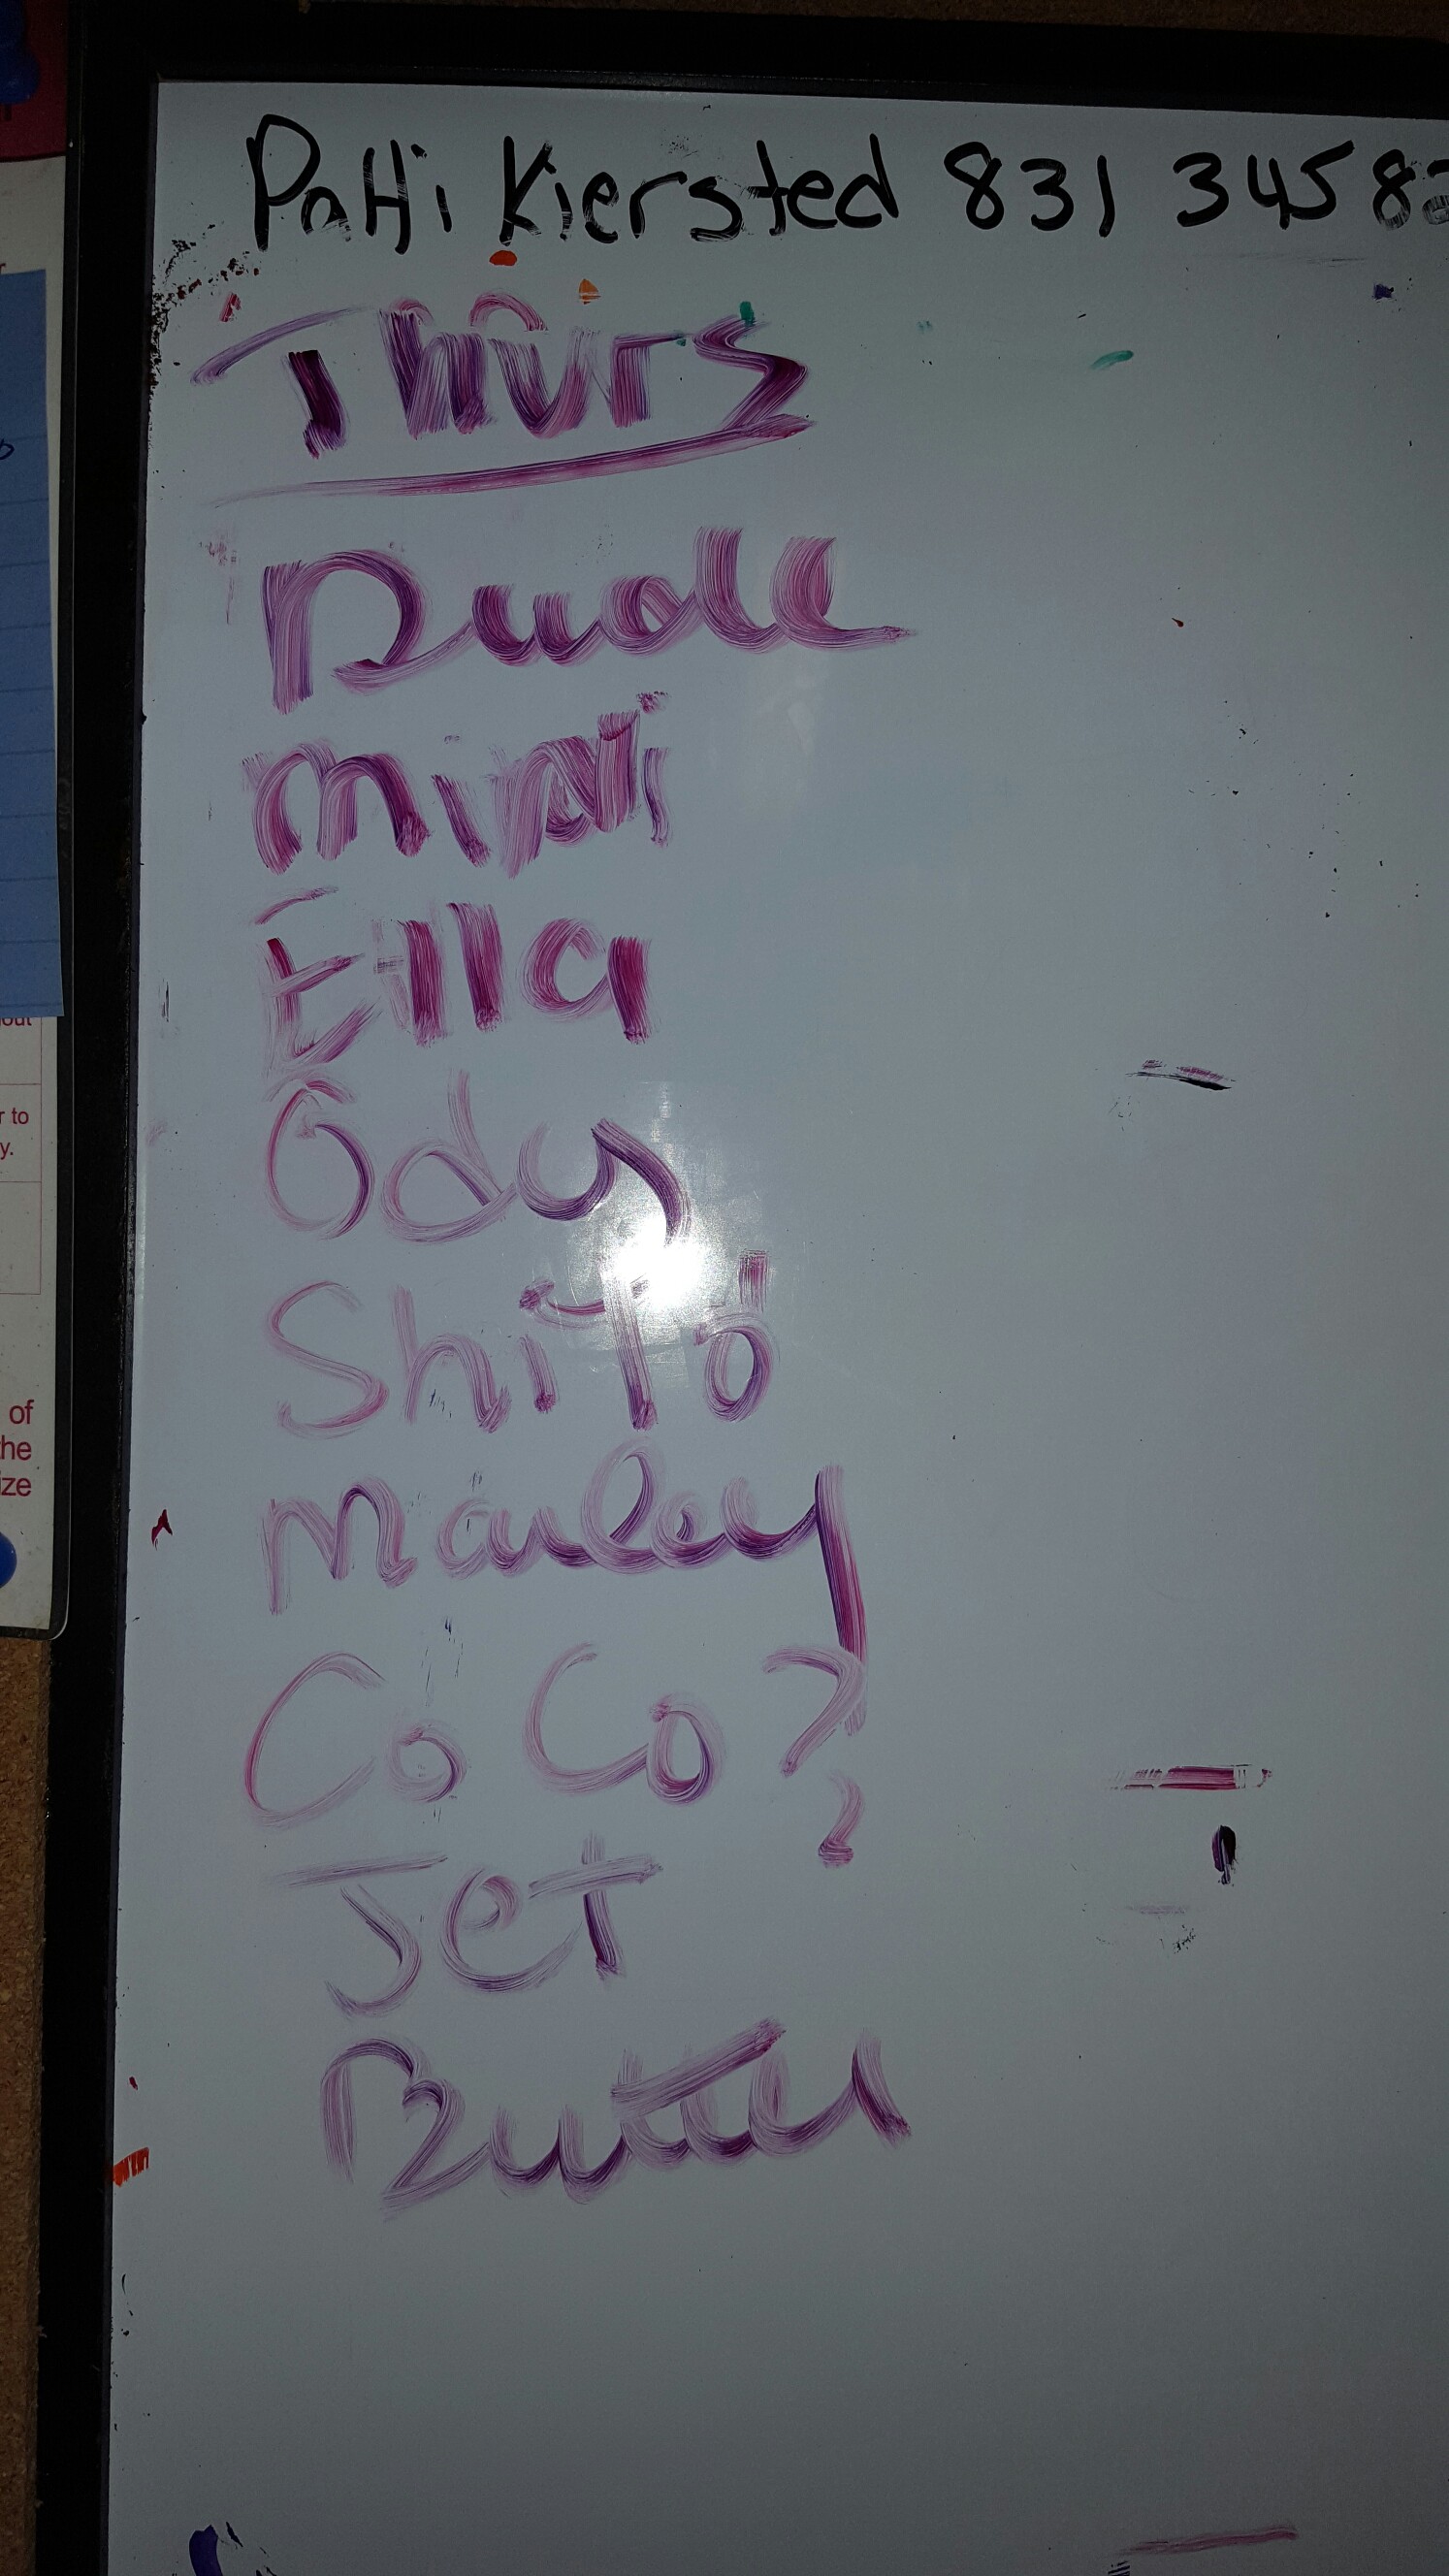 Patti Kiersted 831 345 82
Thurs
Dude
Ella
Ody
Shilo
Marley
CoCo?
Jet
Butter
out
r to
y.
of
the
ize